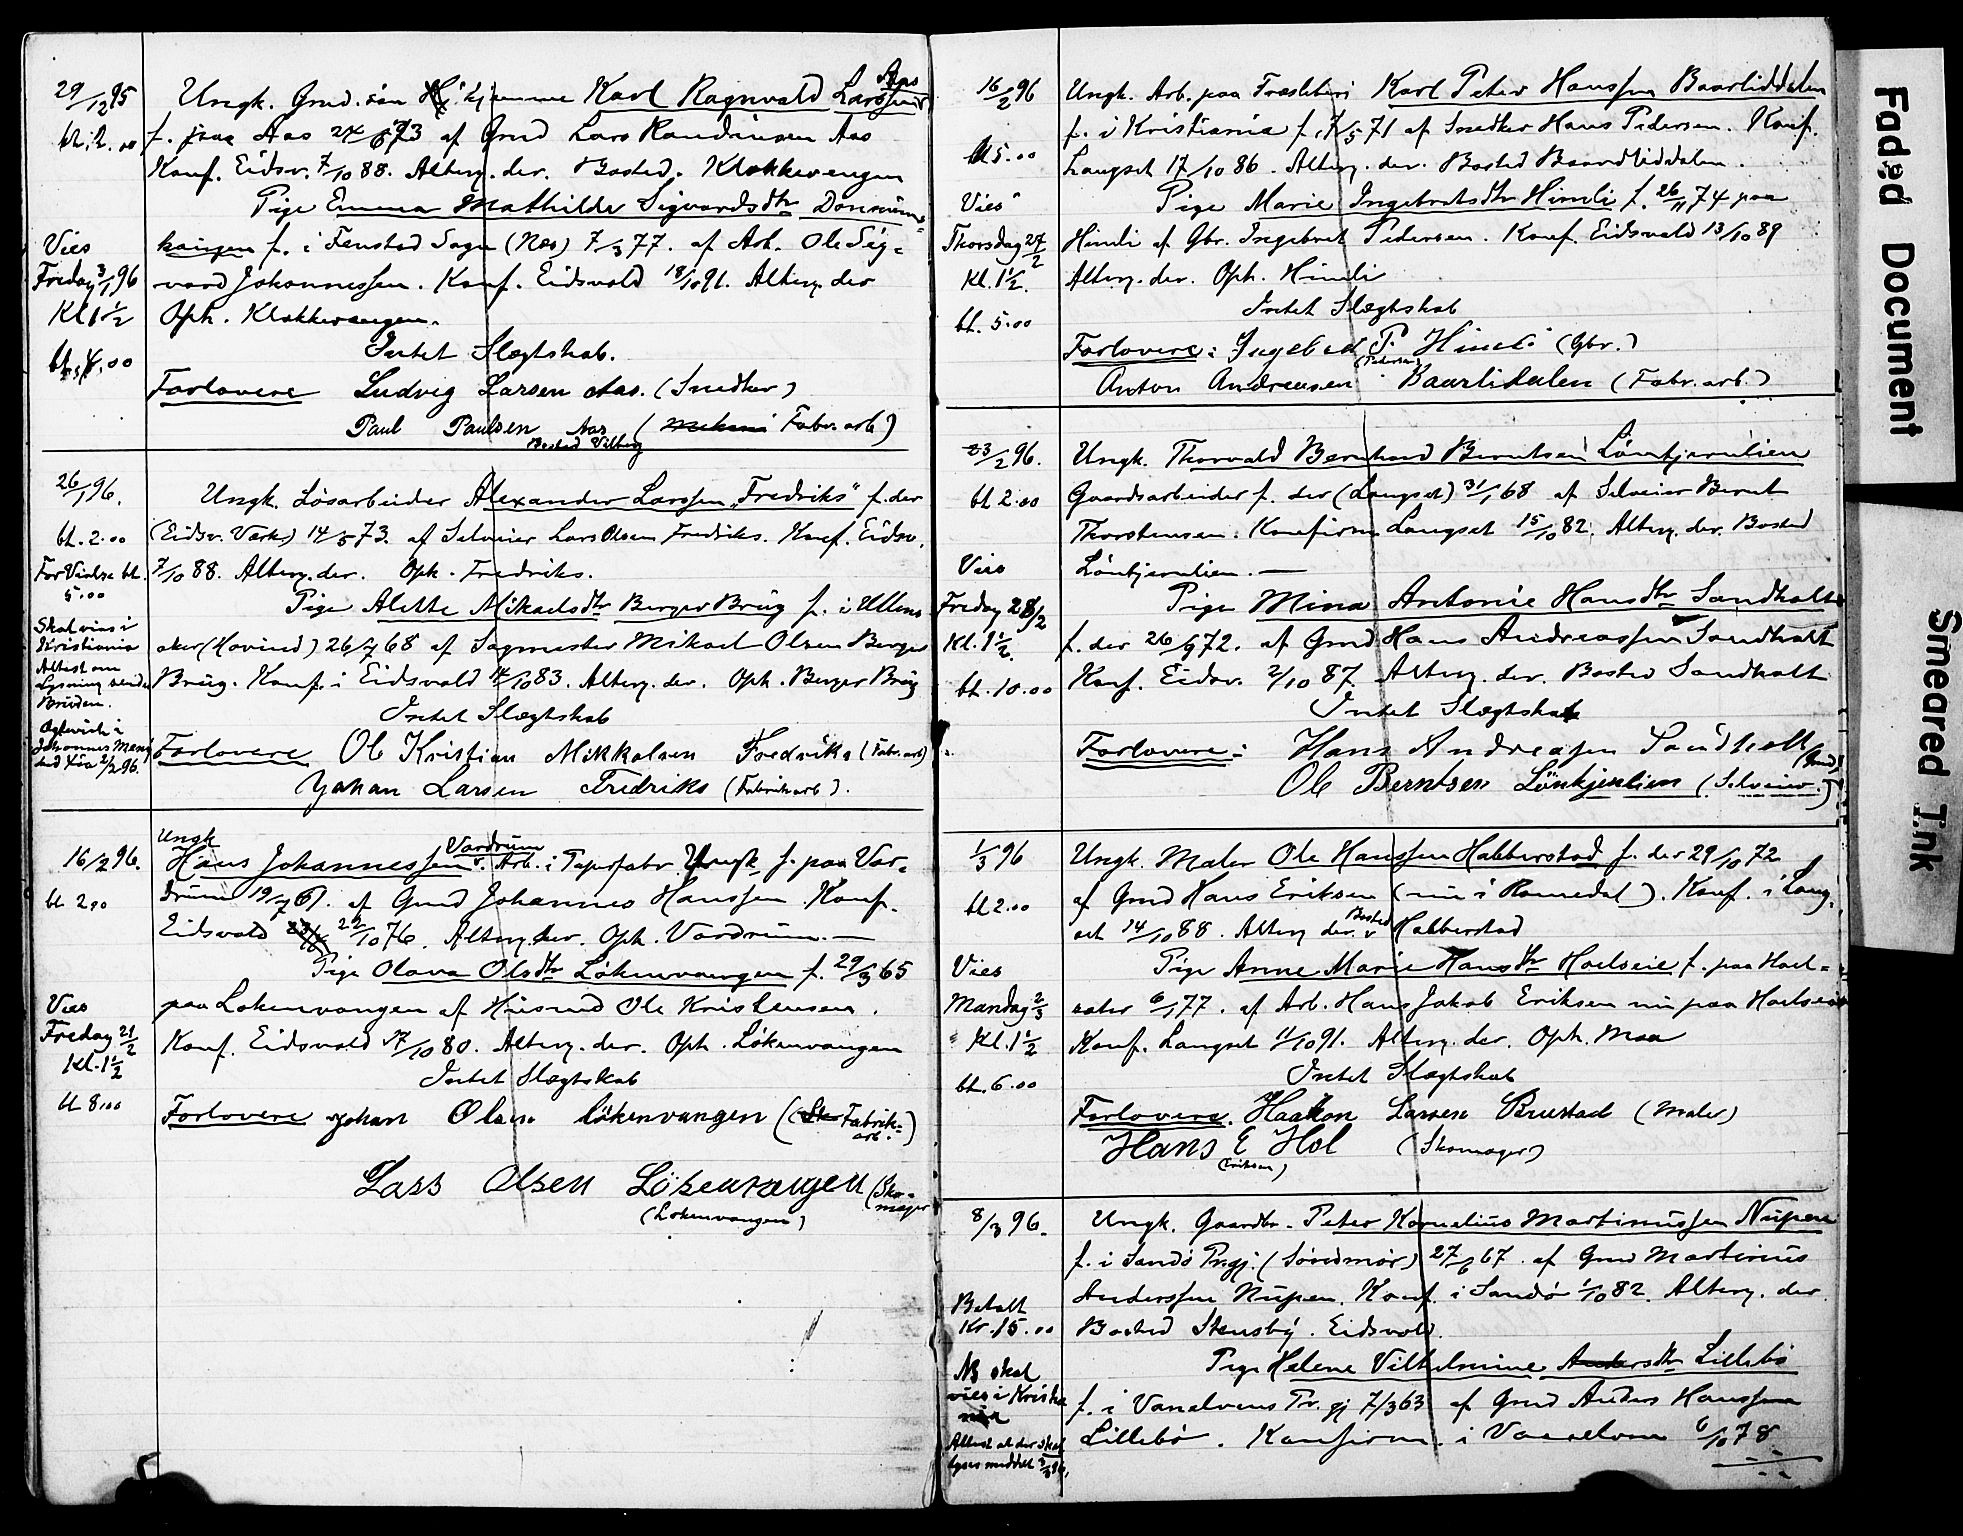 29/12 95
bt. 2.00
Ungk. Grmd. søn hjemme Karl Ragnvald Larssen Aas
f. paa Aas 24/6 73 af Grmd Lars Knudsen Aas
Konf. Eidsv. 7/10 88. Altерg. der. Bosted. Klokkervengen
Pige Emma Mathilde Sigvardsdtr
f. i Fenstad Sogn (Nes) 7/3 77. af Arb. Ole Sig-
vard Johannessen. Konf. Eidsvold 18/10 91. Alterg. der
Oph. Klokkervangen.
Vies
Fredag 3/1 96
Kl 1 1/2
bt. 4.00
Intet Slægtskab.
Forlovere Ludvig Larsen Aas. (Snedker)
Paul Paulsen Aas (Fabr. arb)
Bosted Vilberg
26/1 96.
bt. 2.00
Ungk. Løsarbeider Alexander Larssen „Fredriks" f. der
(Eidsv. Værk) 14/5 73. af Selveier Lars Olsen Fredriks. Konf. Eidsv.
7/10 88. Alterg. der. Oph. Fredriks.
For Vielse bt.
5.00
Pige Alette Mikaelsdtr Berger Brug f. i Ullens
aker (Hovind) 26/7 68 af Sagmester Mikael Olsen Berger
Brug. Konf. i Eidsvold 14/10 83. Alterg. der. Oph. Berger Brug
Skal vies i
Kristiania
Attest om
Lysning sendt
Bruden.
Ogteviet i
Johannes Menig
hed Xia 2/2 96.
Intet Slægtskab
Forlovere Ole Kristian Mikkalsen Fredriks (Fabr. arb)
Johan Larsen Fredriks (Fabrikarb).
16/2 96.
bt 2.00
Ungk
Hans Johannessen Vardrum Arb. i Tapetfabr. f. paa Var-
drum 19/7 61. af Grmd Johannes Hanssen. Konf.
Eidsvold 22/10 76. Alterg. der. Oph. Vardrum.
Pige Olava Olsdtr Lökenvangen f. 29/3 65
paa Lokenvangen af Husmd Ole Kristensen.
Konf. Eidsvold 17/10 80. Alterg. der. Oph. Lökenvangen
Vies
Fredag 21/2
Kl. 1 1/2
bt 8.00
Intet Slægtskab
Forlovere Johan Olsen Lökenvangen (Fabrik-
arb.)
Lars Olsen Lökenvangen (Sko-
mager
(Lokenvangen)
16/2 96
bt 5.00
Ungk. Arb. paa Træsliberi Karl Peter Hanssen Baarliddalen
f. i Kristiania f. 7/5 71 af Snedker Hans Pedersen. Konf.
Langset 17/10 86. Alterg. der. Bosted Baardliddalen.
Vies
Thorsdag 27/2
Kl. 1 1/2.
bt. 5.00
Pige Marie Ingebretsdtr Himli f. 26/11 74 paa
Himli af Gbr. Ingebret Pedersen. Konf. Eidsvold 13/10 89
Alterg. der. Oph. Himli
Intet Slægtskab
Forlovere: Ingebret P. Himli (Gbr.)
(Pedersen)
Anton Andreasen Baarlidalen (Fabr. arb.)
23/2 96.
bt 2.00
Ungk. Thorvald Bernhard Berntsen Löntjernlien
Gaardsarbeider f. der (Langset) 31/1 68 af Selveier Bernt
Thorstensen. Konfirm. Langset 15/10 82. Alterg. der. Bosted
Löntjernlien.
Vies
Fredag 28/2
Kl. 1 1/2.
bt. 10.00
Pige Mina Antonie Hansdtr Sandholt
f. der 26/9 72. af Grmd Hans Andreassen Sandholt
Konf. Eidsv. 2/10 87 Alterg. der. Bosted Sandholt
Intet Slægtskab
Forlovere: Hans Andreasen Sandholt (Grmd)
Ole Berntsen Lönkjenlien (Selveier.)
1/3 96
bt 2.00
Ungk. Maler Ole Hanssen Habberstad f. der 29/10 72
af Grmd Hans Eriksen (nu i Romedal). Konf. i Lang-
set 14/10 88. Alterg der. Bosted Habberstad
Vies
Mandag 2/3
Kl. 1 1/2
bt. 6.00
Pige Anne Marie Hansdtr Hoelseie f. paa Hoel-
sater 6/1 77. af Arb. Hans Jakob Eriksen nu paa Hoelseie
Konf. Langset 11/10 91. Alterg. der. Oph. Moa
Intet Slægtskab
Forlovere. Haakon Larsen Brustad (Maler)
Hans E Hol (Skomager)
(Eriksen)
8/3 96.
Ungk. Gaardbr. Peter Kornelius Martinussen Nupen
f. i Sandö Prgj. (Søndmør) 27/6 67 af Grmd Martinus
Anderssen Nupen. Konf. i Sandö 1/10 82. Alterg. der.
Bosted Stensby. Eidsvold.
Betalt
Kr. 15.00
Pige Helene Vilhelmine Andersdtr Lillebö
f. i Vanelvens Pr.gj 7/3 63 af Grmd Anders Hanssen
Lillebö. Konfirm. i Vanelven 6/10 78
NB skal
vies i Kristia
nia
Attest at der skal
lyses meddelt
Faded Document
Smeared Ink